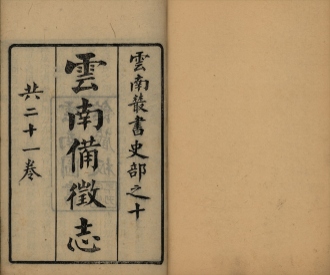 雲南叢書史部之十
雲南備徵志
共二十一卷